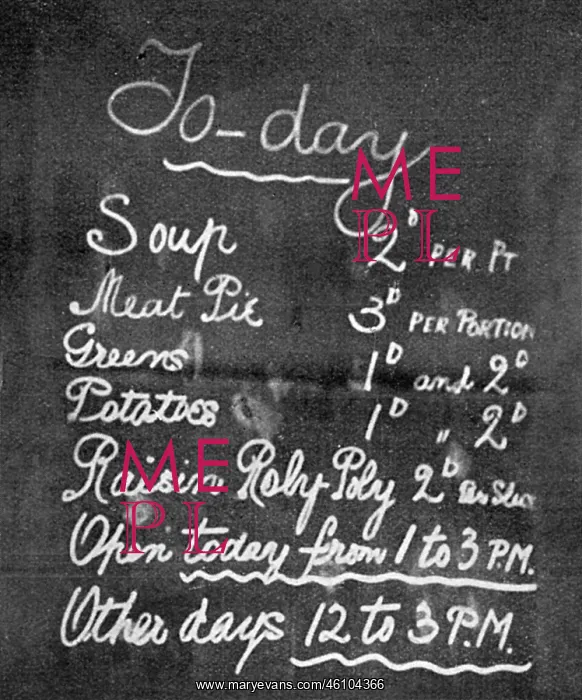 To-day
Soup 2D PER PT
Meat Pie 3D PER PORTION
Greens 1D and 2D
Potatoes 1D " 2D
Raisin Roly-Poly 2D Per Slice
Open today from 1 to 3 P.M.
Other days 12 to 3 P.M.
ME
PL
ME
PL
www.maryevans.com/46104366